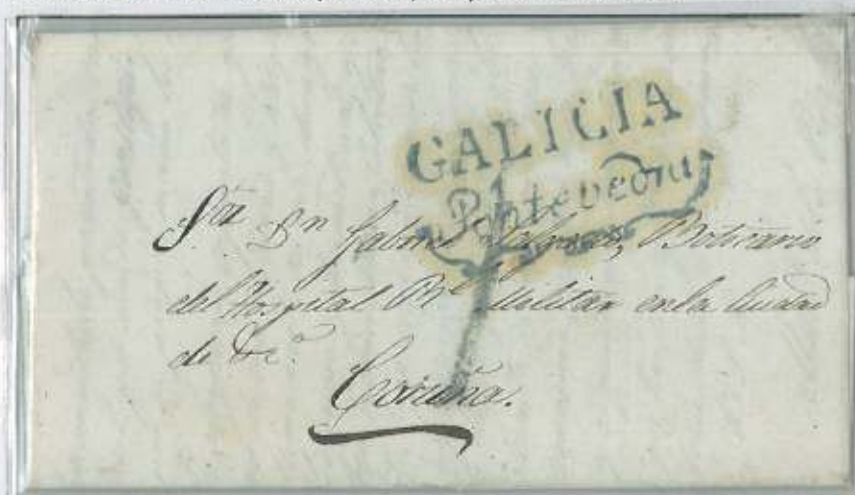 GALICIA
Pontevedra
Dn Gabriel Boticario
del Hospital Rl Militar en la Ciudad
de &c.a
Coruña.